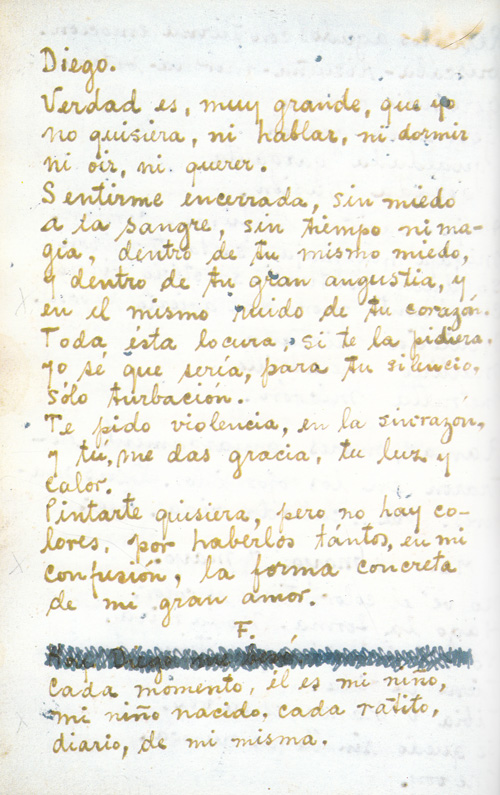 Diego.
Verdad es, muy grande, que yo
no quisiera, ni hablar, ni dormir
ni oir, ni querer.
Sentirme encerrada, sin miedo
a la sangre, sin tiempo ni ma-
gia, dentro de tu mismo miedo,
y dentro de tu gran angustia, y
en el mismo ruido de tu corazón.
Toda ésta locura, si te la pidiera,
yo sé que sería, para tu silencio,
sólo turbación.
Te pido violencia, en la sinrazón,
y tú, me das gracia, tu luz y
calor.
Pintarte quisiera, pero no hay co-
lores, por haberlos tántos, en mi
confusión, la forma concreta
de mi gran amor.
F.
Diego
Cada momento, él es mi niño,
mi niño nacido, cada ratito,
diario, de mi misma.